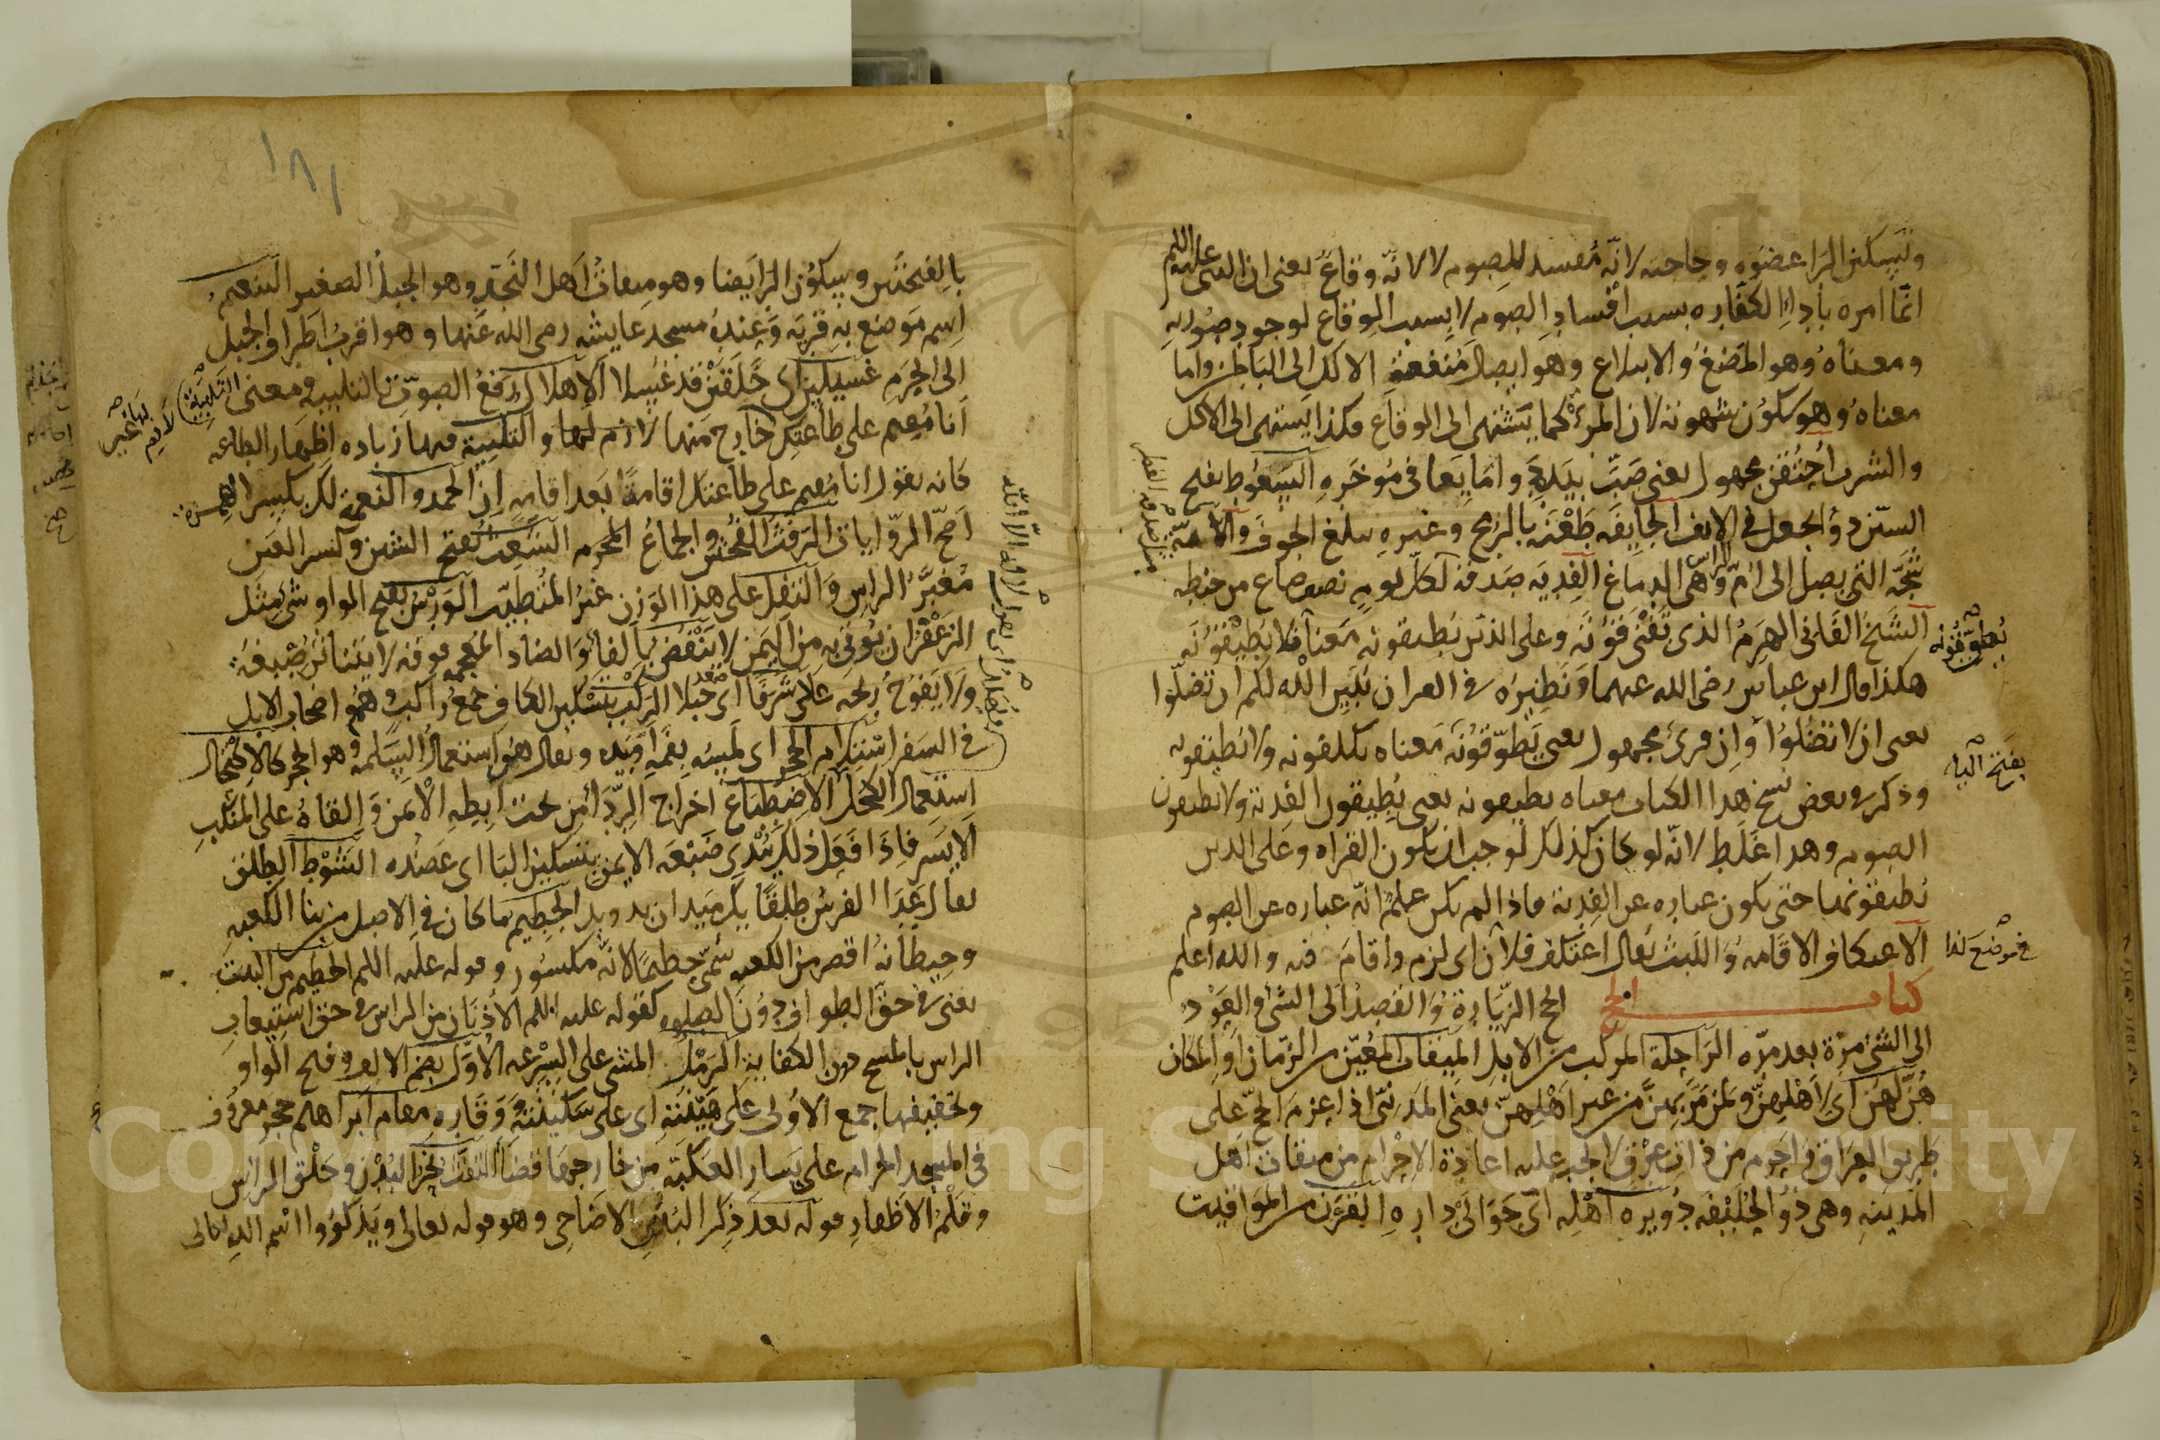 وتسكين الرا عضوه وحاجته لانه مفسد للصوم لا لانه وقاع يعنى ان النبى عليه اللم
انما امره بأدا الكفاره بسبب افساد الصوم لا بسبب الوقاع لوجود صورته
ومعناه وهو المضغ والابتلاع وهو ايصال منفعة الاكل الى الباطن واما
معناه وهو سكون شهوته لان المرئ كما يشتهى الى الوقاع فكذا يشتهى الى الاكل
والشرب احتقن مجهول يعنى صب بيده فى مؤخره السعوط بفتح
السين دوا يجعل فى الانف الجايفه طعنة بالرمح وغيره يبلغ الجوف والآمة
شجه التى يصل الى ام الراس وهى الدماغ الفديه صدقه لكل يوم نصف صاع من حنطه
الشيخ الفانى الهرم الذى تفنى قوته وعلى الذين يطيقونه معناه لا يطيقونه
هكذا قال ابن عباس رضى الله عنهما ونظيره فى القران يبين الله لكم ان تضلوا
يعنى ان لا تضلوا وان قرئ مجهول يعنى يطوقونه معناه يكلفونه ولا يطيقونه
وذكر فى بعض نسخ هذا الكتاب معناه يطيقونه يعنى يطيقون الفدية ولا يطيقون
الصوم وهذا غلط لانه لو كان كذلك لوجب ان يكون القراه وعلى الذين
يطيقونها حتى يكون عباره عن الفدية فاذا لم يكن علم انه عباره عن الصوم
الاعتكاف الاقامه واللبث يقال اعتكف فلان اى لزم واقام فيه والله اعلم
كتاب الحج الحج الزيارة والقصد الى الشئ والعود
الى الشئ مرة بعد مره الراحلة المركب من الابل الميقات المعين من الزمان او المكان
هن لهن اى لاهلهن ولمن مر بهن من غير اهلهن يعنى المدنى اذا عزم الحج على
طريق العراق فاحرم من ذات عرق لا يجب عليه اعادة الاحرام من ميقات اهل
المدينه وهى ذو الحليفه دويره اهله اى حوالى داره القرن من المواقيت
يطوقونه
بفتح اليا
فى موضع كذا
١٨١
بالفتحتين وبسكون الرا ايضا وهو ميقات اهل النجد وهو الجبل الصغير التنعيم
اسم موضع به قربه وعنده مسجد عايشه رضى الله عنها وهو اقرب اطراف الجبل
الى الحرم غسيلين اى خلقين قد غسلا الاهلال رفع الصوت بالتلبيه ومعنى التلبية
انا مقيم على طاعتك خارج منها لازم لها والتلبية فيها زياده اظهار الطاعه
كانه يقول انا مقيم على طاعتك اقامة بعد اقامه ان الحمد والنعمة لك بكسر الهمزه
اصح الروايات الرفث الفحش والجماع المحرم الشعث بفتح الشين وكسر العين
مغبر الراس والتفل على هذا الوزن غير المتطيب الورس بفتح الواو شئ مثل
الزعفران يؤتى به من اليمن لا ينفض بالفا والضاد المعجمه فوقه لا يتناثر صبغه
ولا يفوح ريحه علا شرفا اى صعد جبلا الركب بتسكين الكاف جمع راكب وهم اصحاب الابل
فى السفر استلام الحجر اى لمسه بفمه او بيده ويقال هو استعمال السلمه وهو الحجر كالاكتحال
استعمال الكحل الاضطباع اخراج الردا من تحت ابطه الايمن والقاه على المنكب
الايسر فاذا فعل ذلك يبدى ضبعه الايمن بتسكين البا اى عضده الشوط الطلق
يقال غدا الفرس طلقا يك ميدان بدويد الحطيم ما كان فى الاصل من بنا الكعبه
وحيطانه اقصر من الكعبه سمى حطيما لانه مكسور وقوله عليه اللم الحطيم من البيت
يعنى فى حق الطواف دون الصلوه كقوله عليه اللم الاذنان من الراس فى حق استيعاب
الراس بالمسح دون الكفاية الرمل المشى على السرعه الاول بضم الالف وفتح الواو
وتخفيفها جمع الاولى على هينته اى على سكينته ووقاره مقام ابراهيم حجر معروف
فى المسجد الحرام على يسار الكعبة من خارجها قضا التفث نحر البدن وحلق الراس
وقلم الاظفار قوله بعد ذكر البدن الاضاحى وهو قوله تعالى ويذكروا اسم الله تعالى